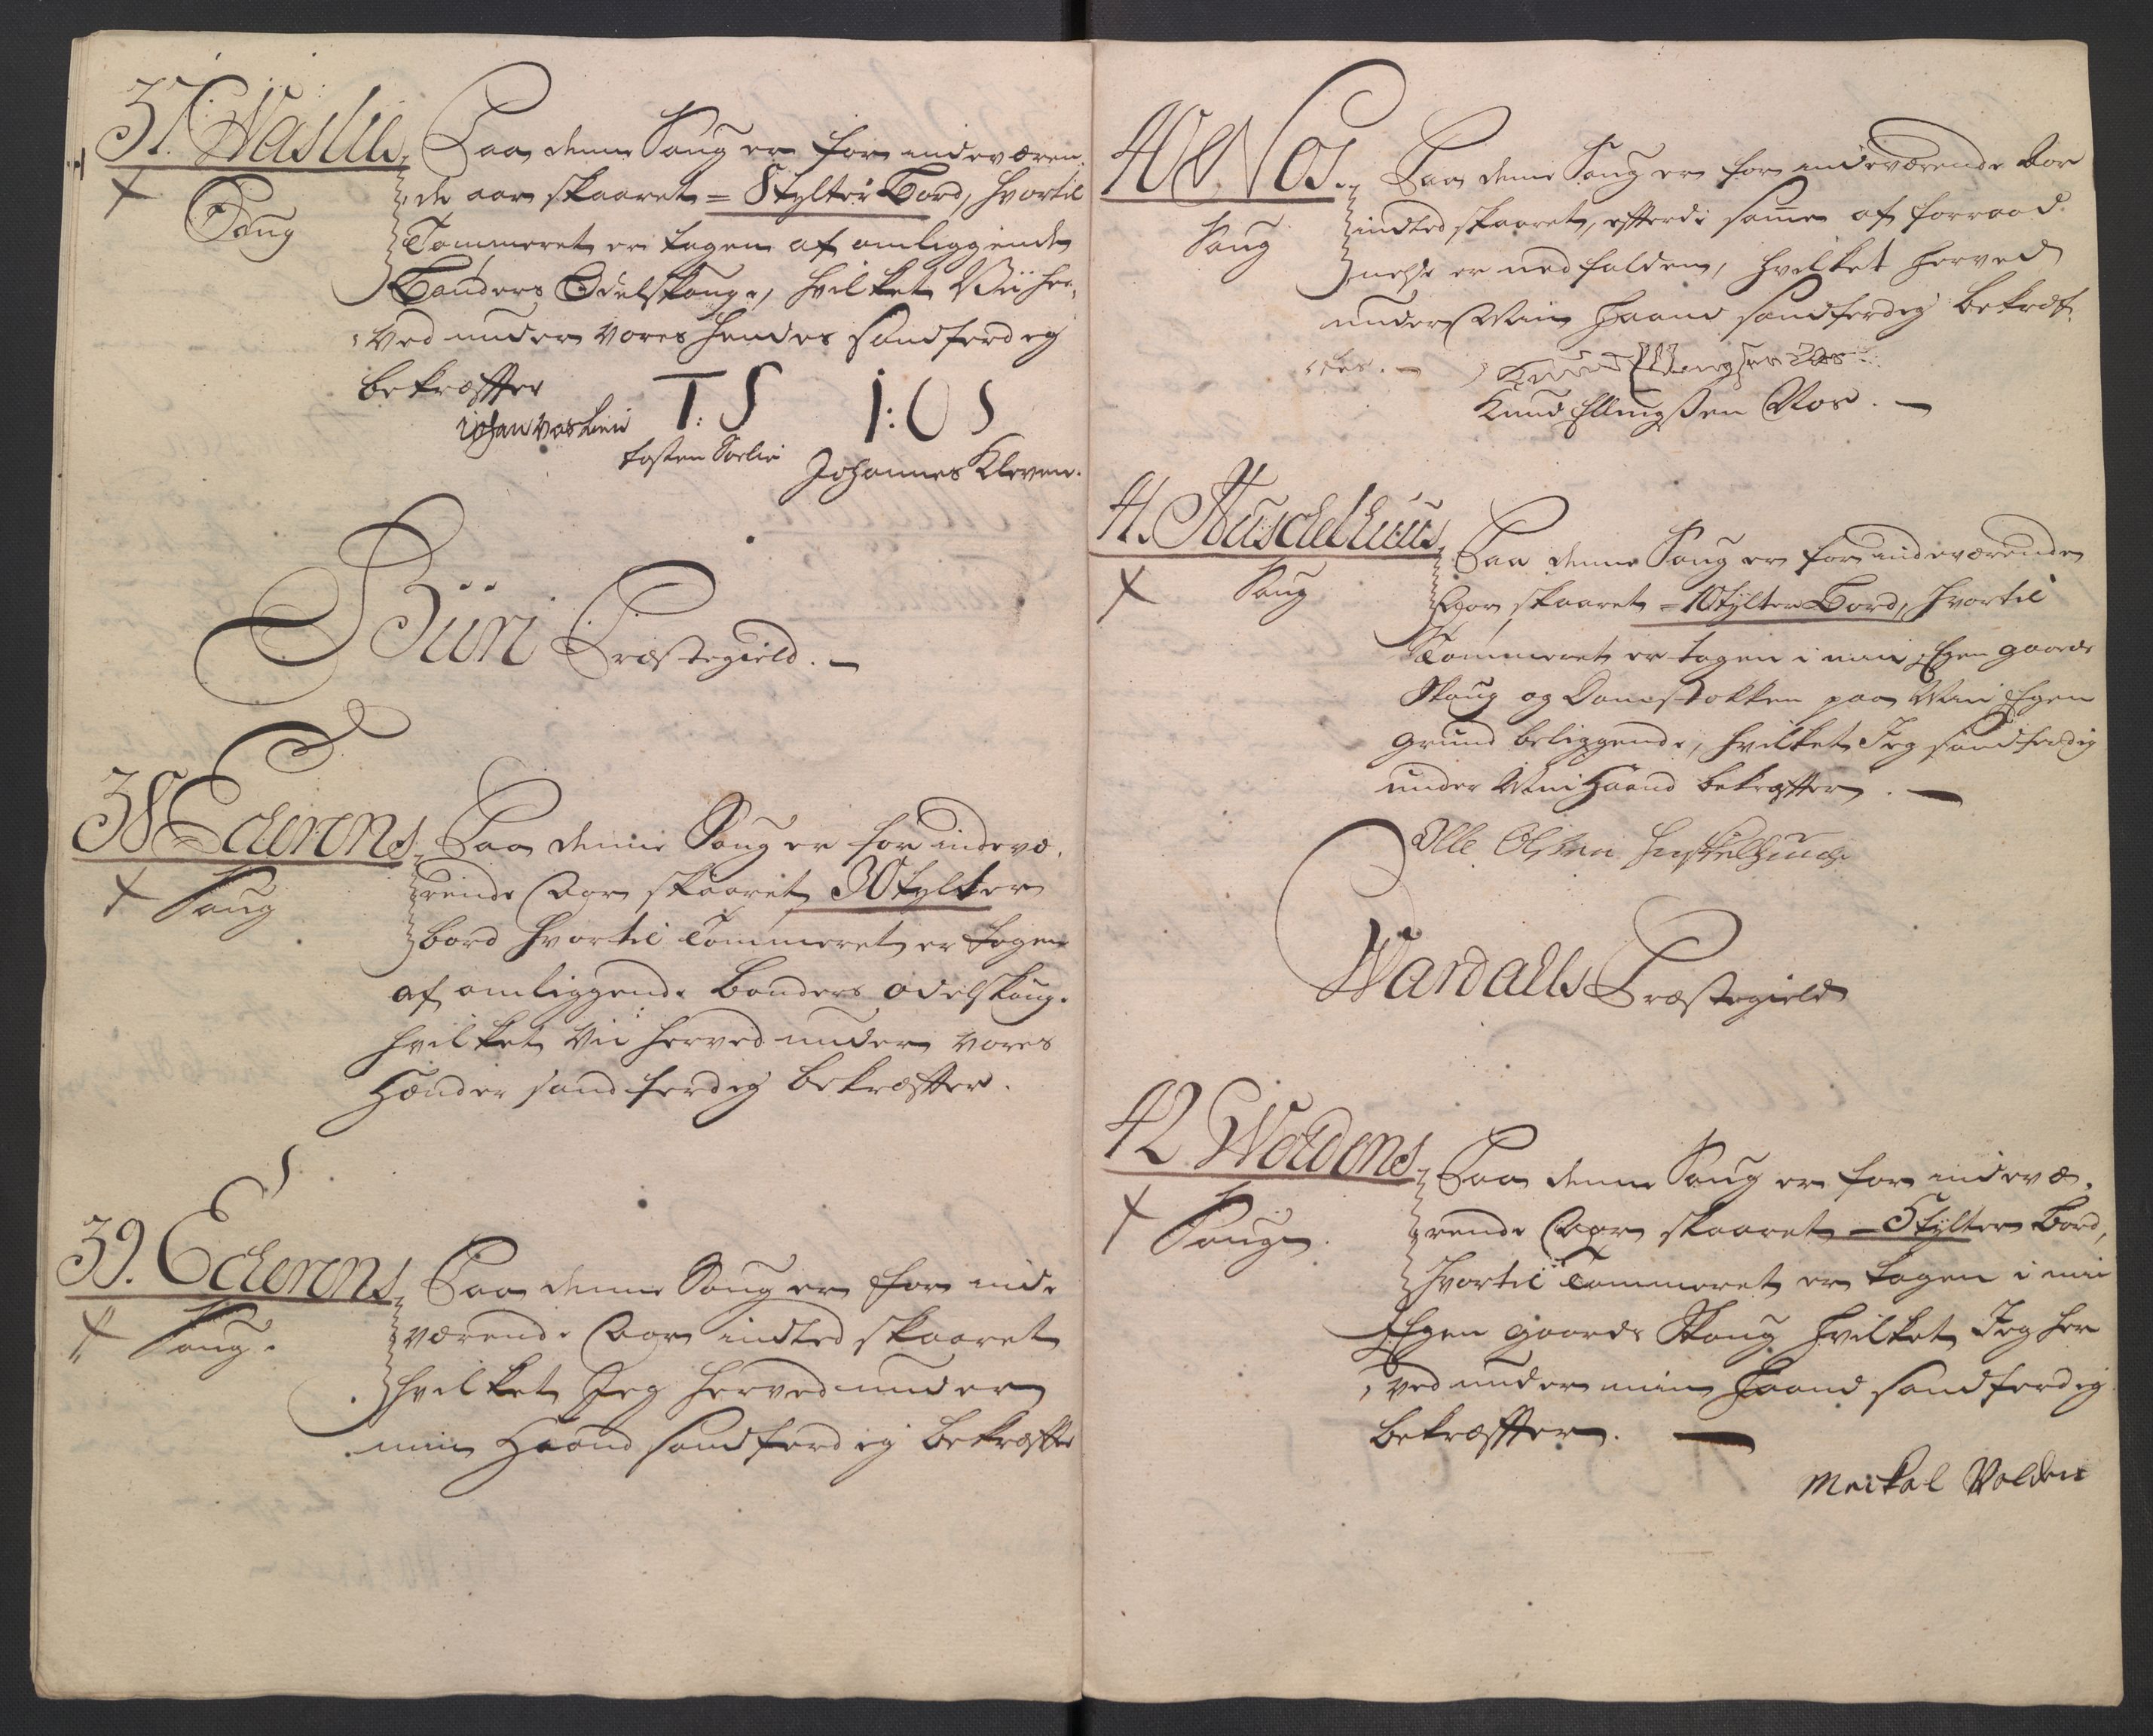 37. Waslies
Saug
Paa denne Saug er for indeværen,
de aar skaaret = 8 tylter Bord, hvortil
Tømmeret er tagen af omliggende
Bønders Odelskouge, hvilket Vii her,
ved under vores hender sandferdig
bekræffter
T: S I: O S
Johan Vaslien
Tosten Sorlie
Johannes Kleven.
Biiri Præstegield. —
38 Echerens
Saug
Paa denne Saug er for indevæ,
rende Aar skaaret 30 tylter
bord hvortil Tømmeret er tagen
af omliggende bønders odelskoug.
hvilket Vii herved under vores
Hænder sandferdig bekræffter.
39. Echerens
Saug.
Paa denne Saug er for inde
værende Aar indted skaaret
hvilket Jeg herved under
min Haand sandferdig bekræffter
40 Nos.
Saug
Paa denne Saug er for indeværende Aar
indted skaaret, efferdi samme af forraad
nelse er ned falden, hvilket herved
under Min Haand sandferdig bekræf,
tes. —
Knud Ellingsen Nos
Knud Ellingssen Nos. —
41. Huschelhuus
Saug
Paa denne Saug er for indeværende
Aar skaaret = 10 tylter Bord, hvortil
Tømmeret er tagen i min Egen gaards
Skoug og Damstokken paa Min Egen
grund beliggende, hvilket Jeg sandferdig
under Min Haand bekræffter. —
Olle Olsen Huskelhuus
Wardalls Præstegield
42 Woldens
Saug.
Paa denne Saug er for indevæ,
rende Aar skaaret = 5 tylter Bord,
hvortil Tømmeret er tagen i min
Egen gaards Skoug hvilket Jeg her
ved under min Haand sandferdig
bekræffter. —
Meikal Volden